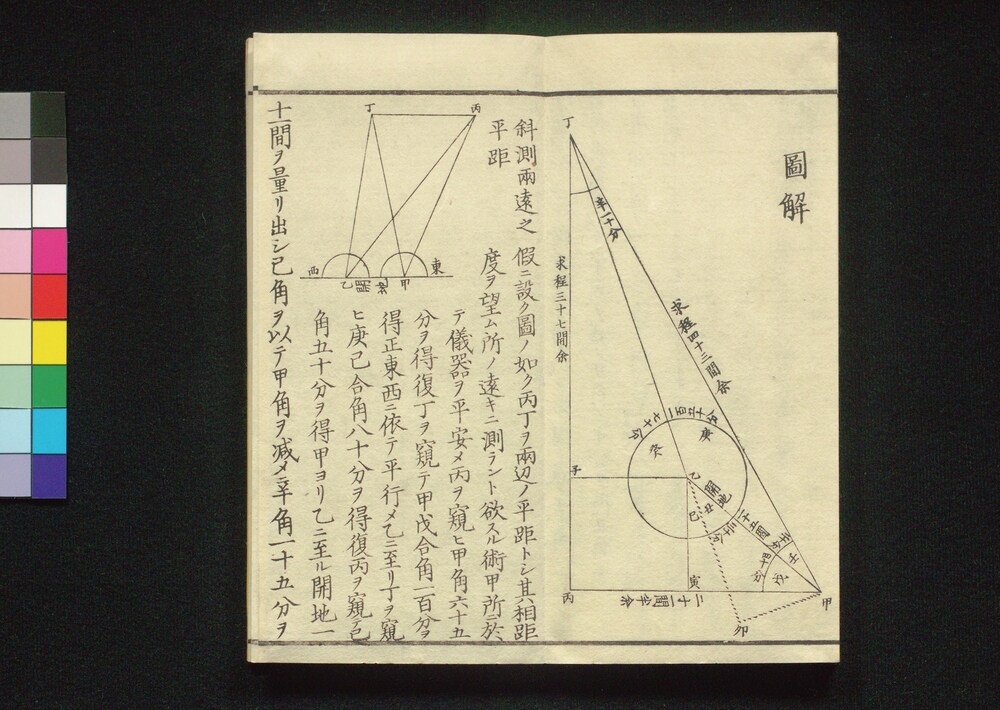 圖解
丁
辛一十分
求程四十三間余
求程三十七間余
庚
癸
乙
開地
子
巳
寅
壬
戊
甲
丙
二十一間半余
卯
斜測兩遠之
平距
假ニ設ク圖ノ如ク丙丁ヲ兩辺ノ平距トシ其相距
度ヲ望ム所ノ遠キニ測ラント欲スル術甲所ニ於
テ儀器ヲ平安メ丙ヲ窺ヒ甲角六十五
分ヲ得復丁ヲ窺テ甲戊合角一百分ヲ
得正東西ニ依テ平行メ乙ニ至リ丁ヲ窺
ヒ庚己合角八十分ヲ得復丙ヲ窺テ己
角五十分ヲ得甲ヨリ乙ニ至ル開地一
十一間ヲ量リ出シ己角ヲ以テ甲角ヲ減メ辛角一十五分ヲ
丁
丙
東
甲
乙
西